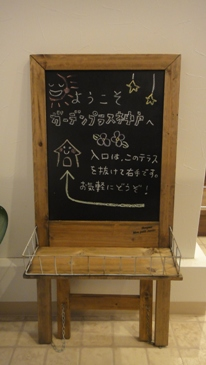 ようこそ
ガーデンプラス
へ
入口は、このテラス
を抜けて右手です。
お気軽にどうぞ!